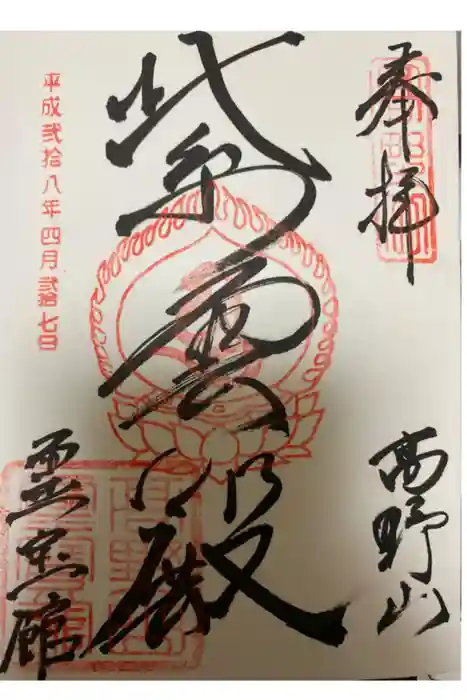 奉拝
高野山
紫雲殿
霊宝館
平成弐拾八年四月弐拾七日